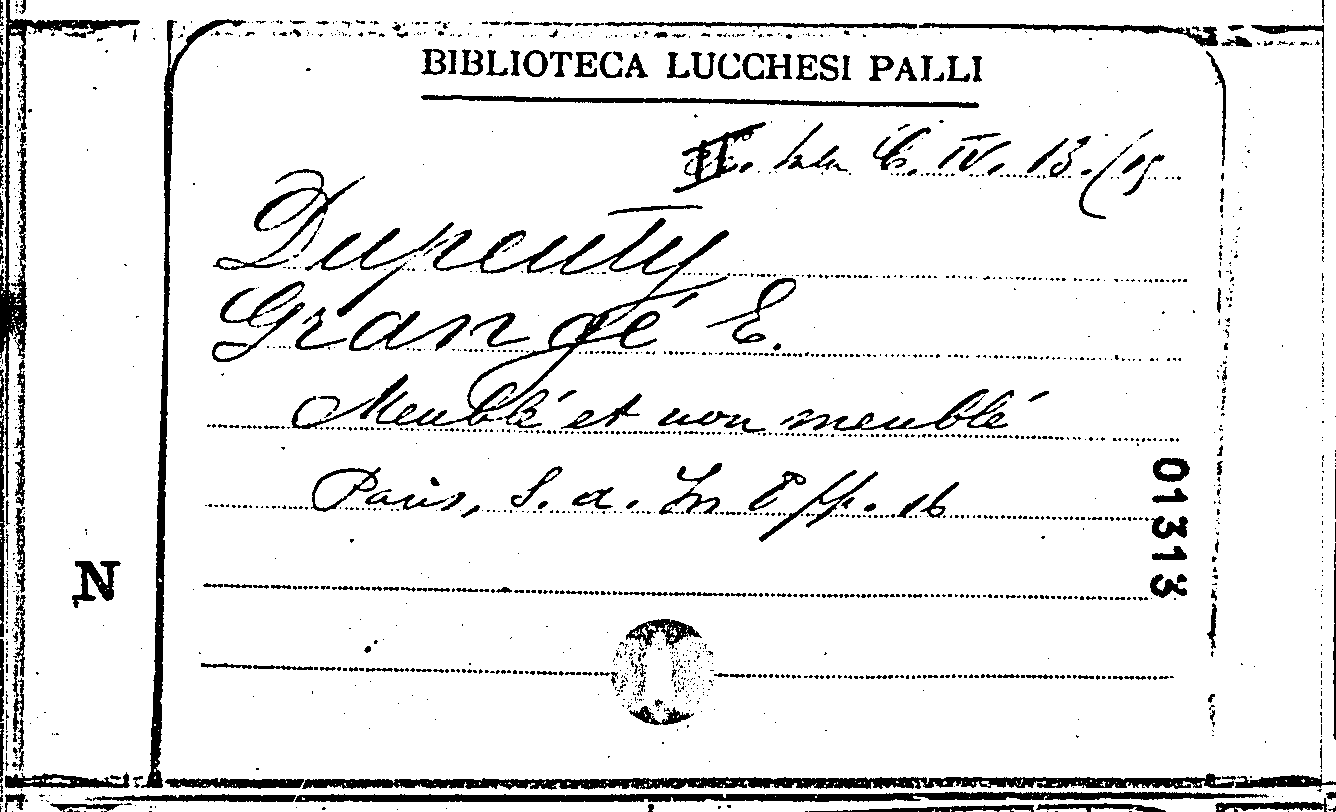 BIBLIOTECA LUCCHESI PALLI
II. Sala C. IV. 13./15
Dupeuty
Grangé E.
Meublé et non meublé
Paris, S. a. In 8° pp. 16
01313
N